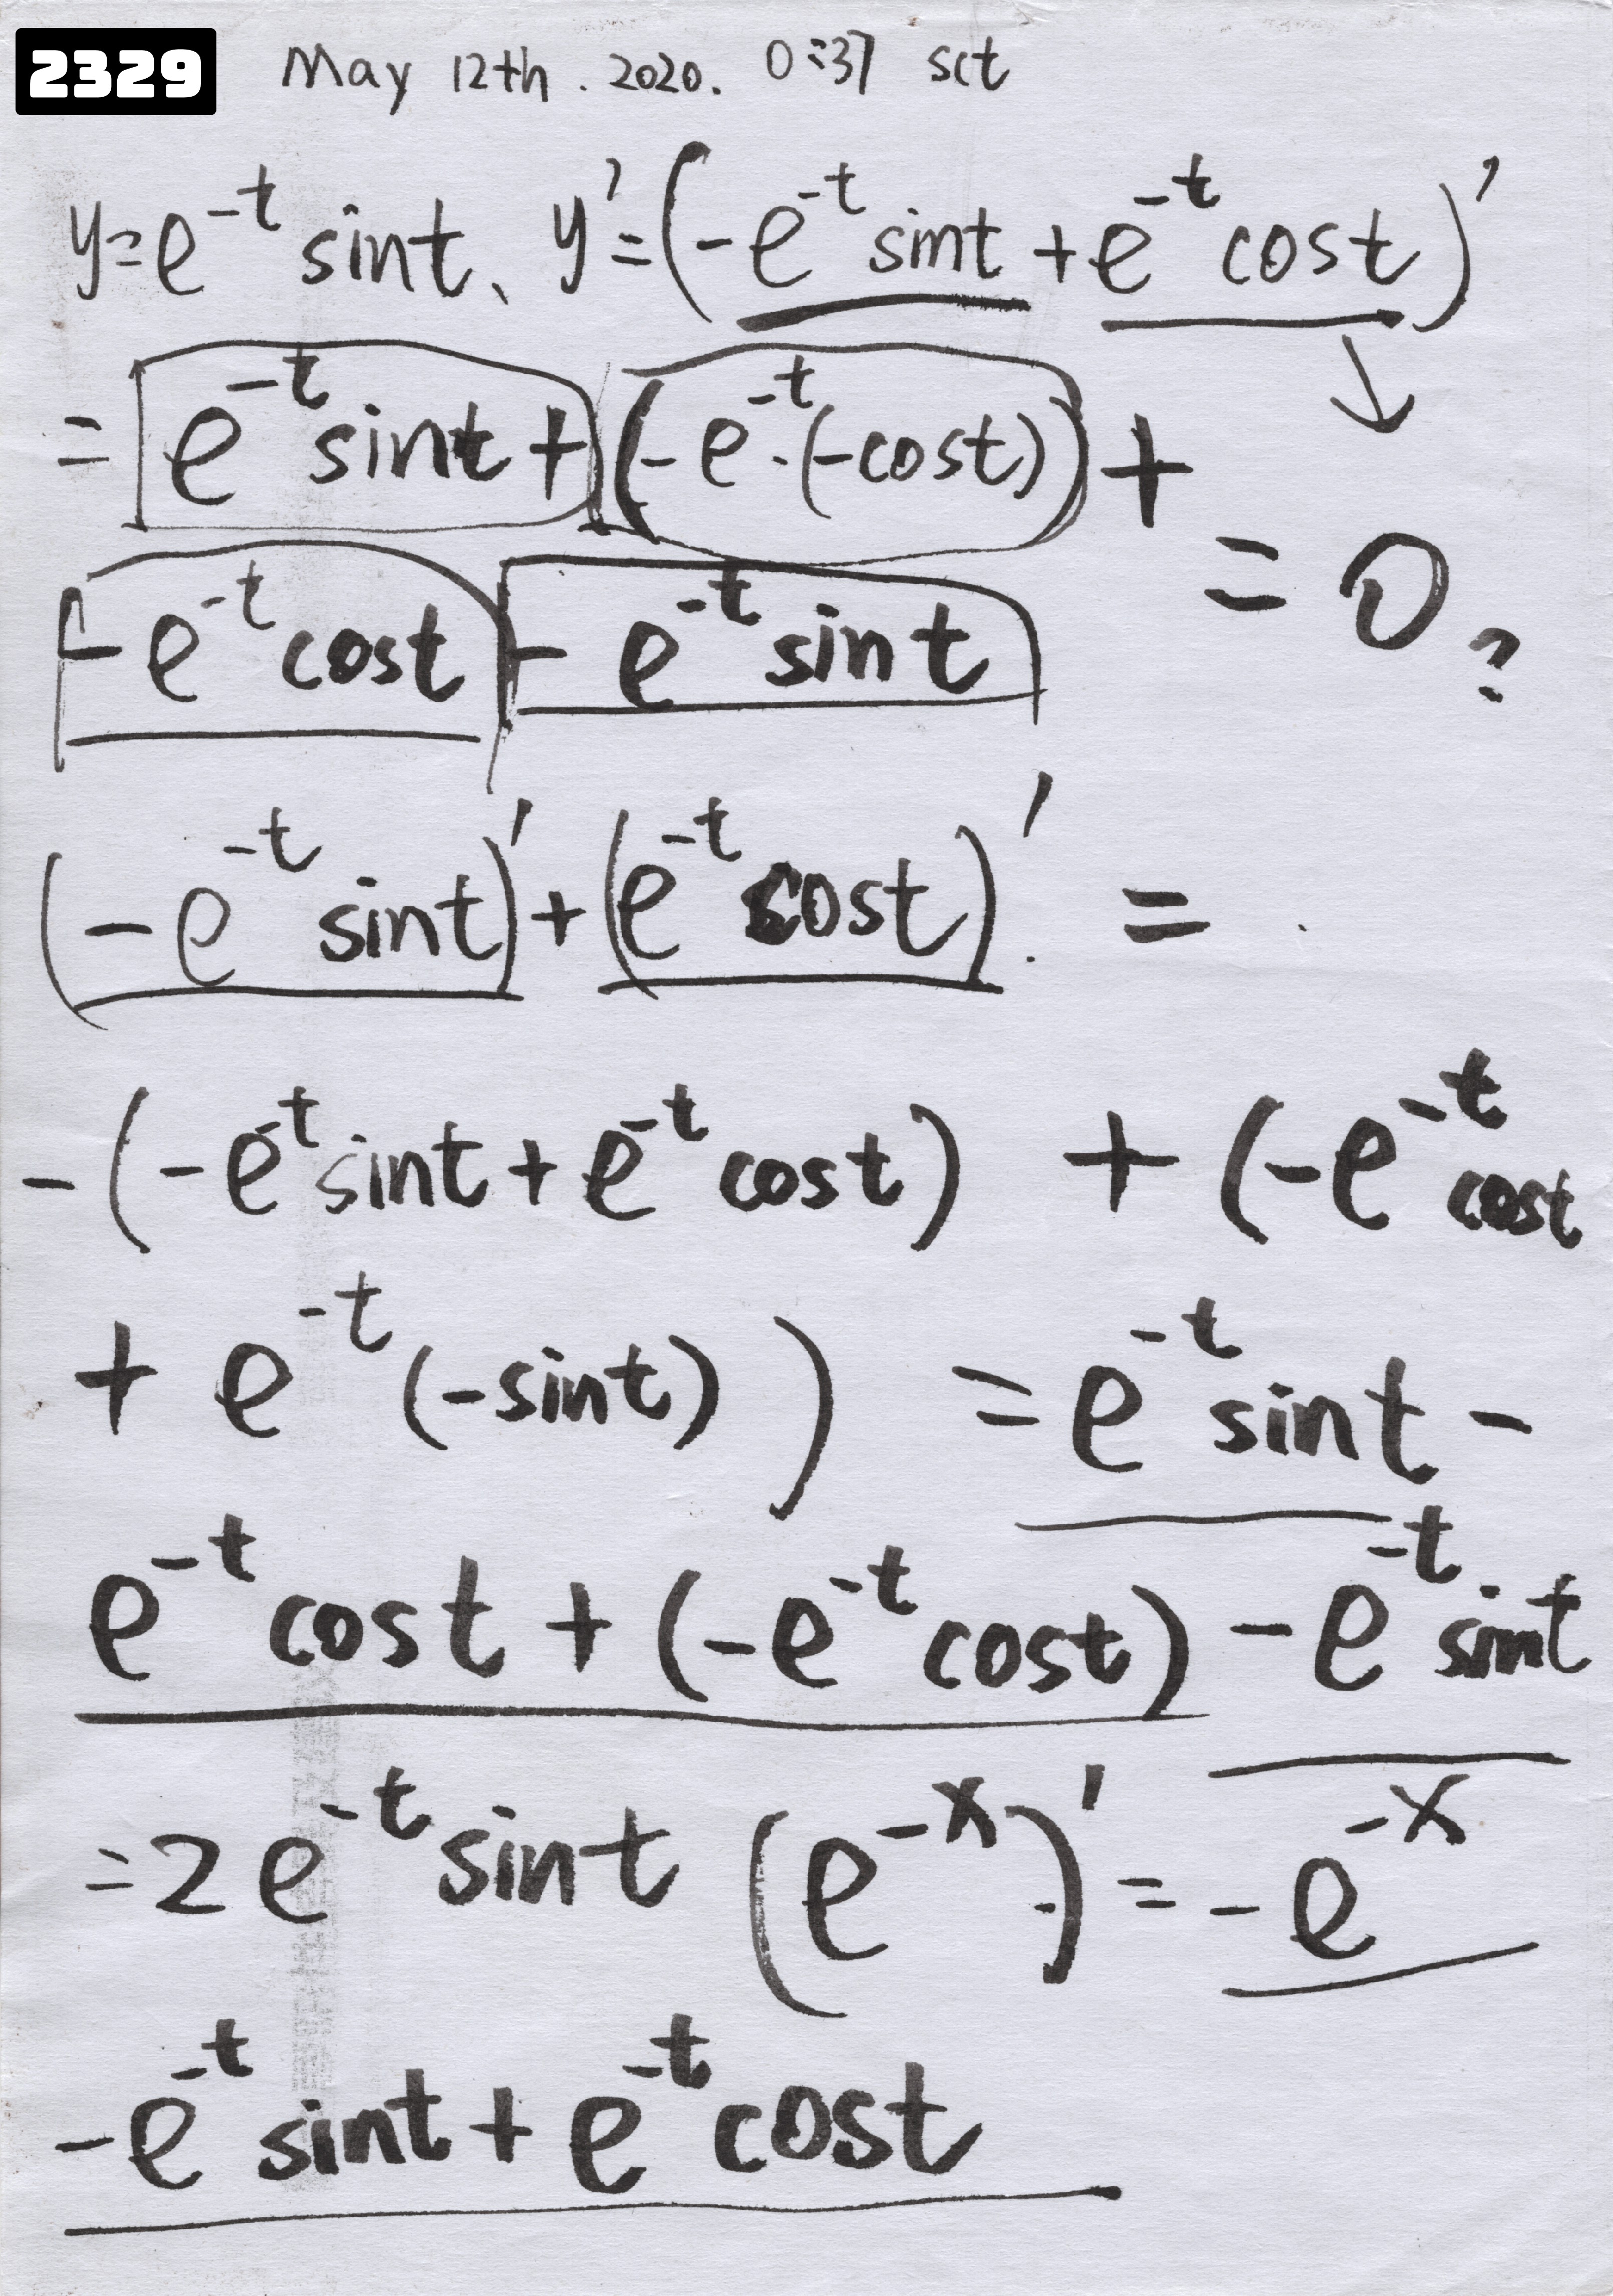 2329 May 12th. 2020. 0:37 sct
y=e^-t sint、 y'=(-e^-t sint +e^-t cost)'
= e^-t sint + (-e^-t·(-cost)) + ↓
= 0?
-e^-t cost - e^-t sint
(-e^-t sint)' + (e^-t cost)'. =
-(-e^-t sint + e^-t cost) + (-e^-t cost
+ e^-t (-sint) ) = e^-t sint -
e^-t cost + (-e^-t cost) - e^-t sint
=2e^-t sint (e^-x)' = -e^-x
-e^-t sint + e^-t cost